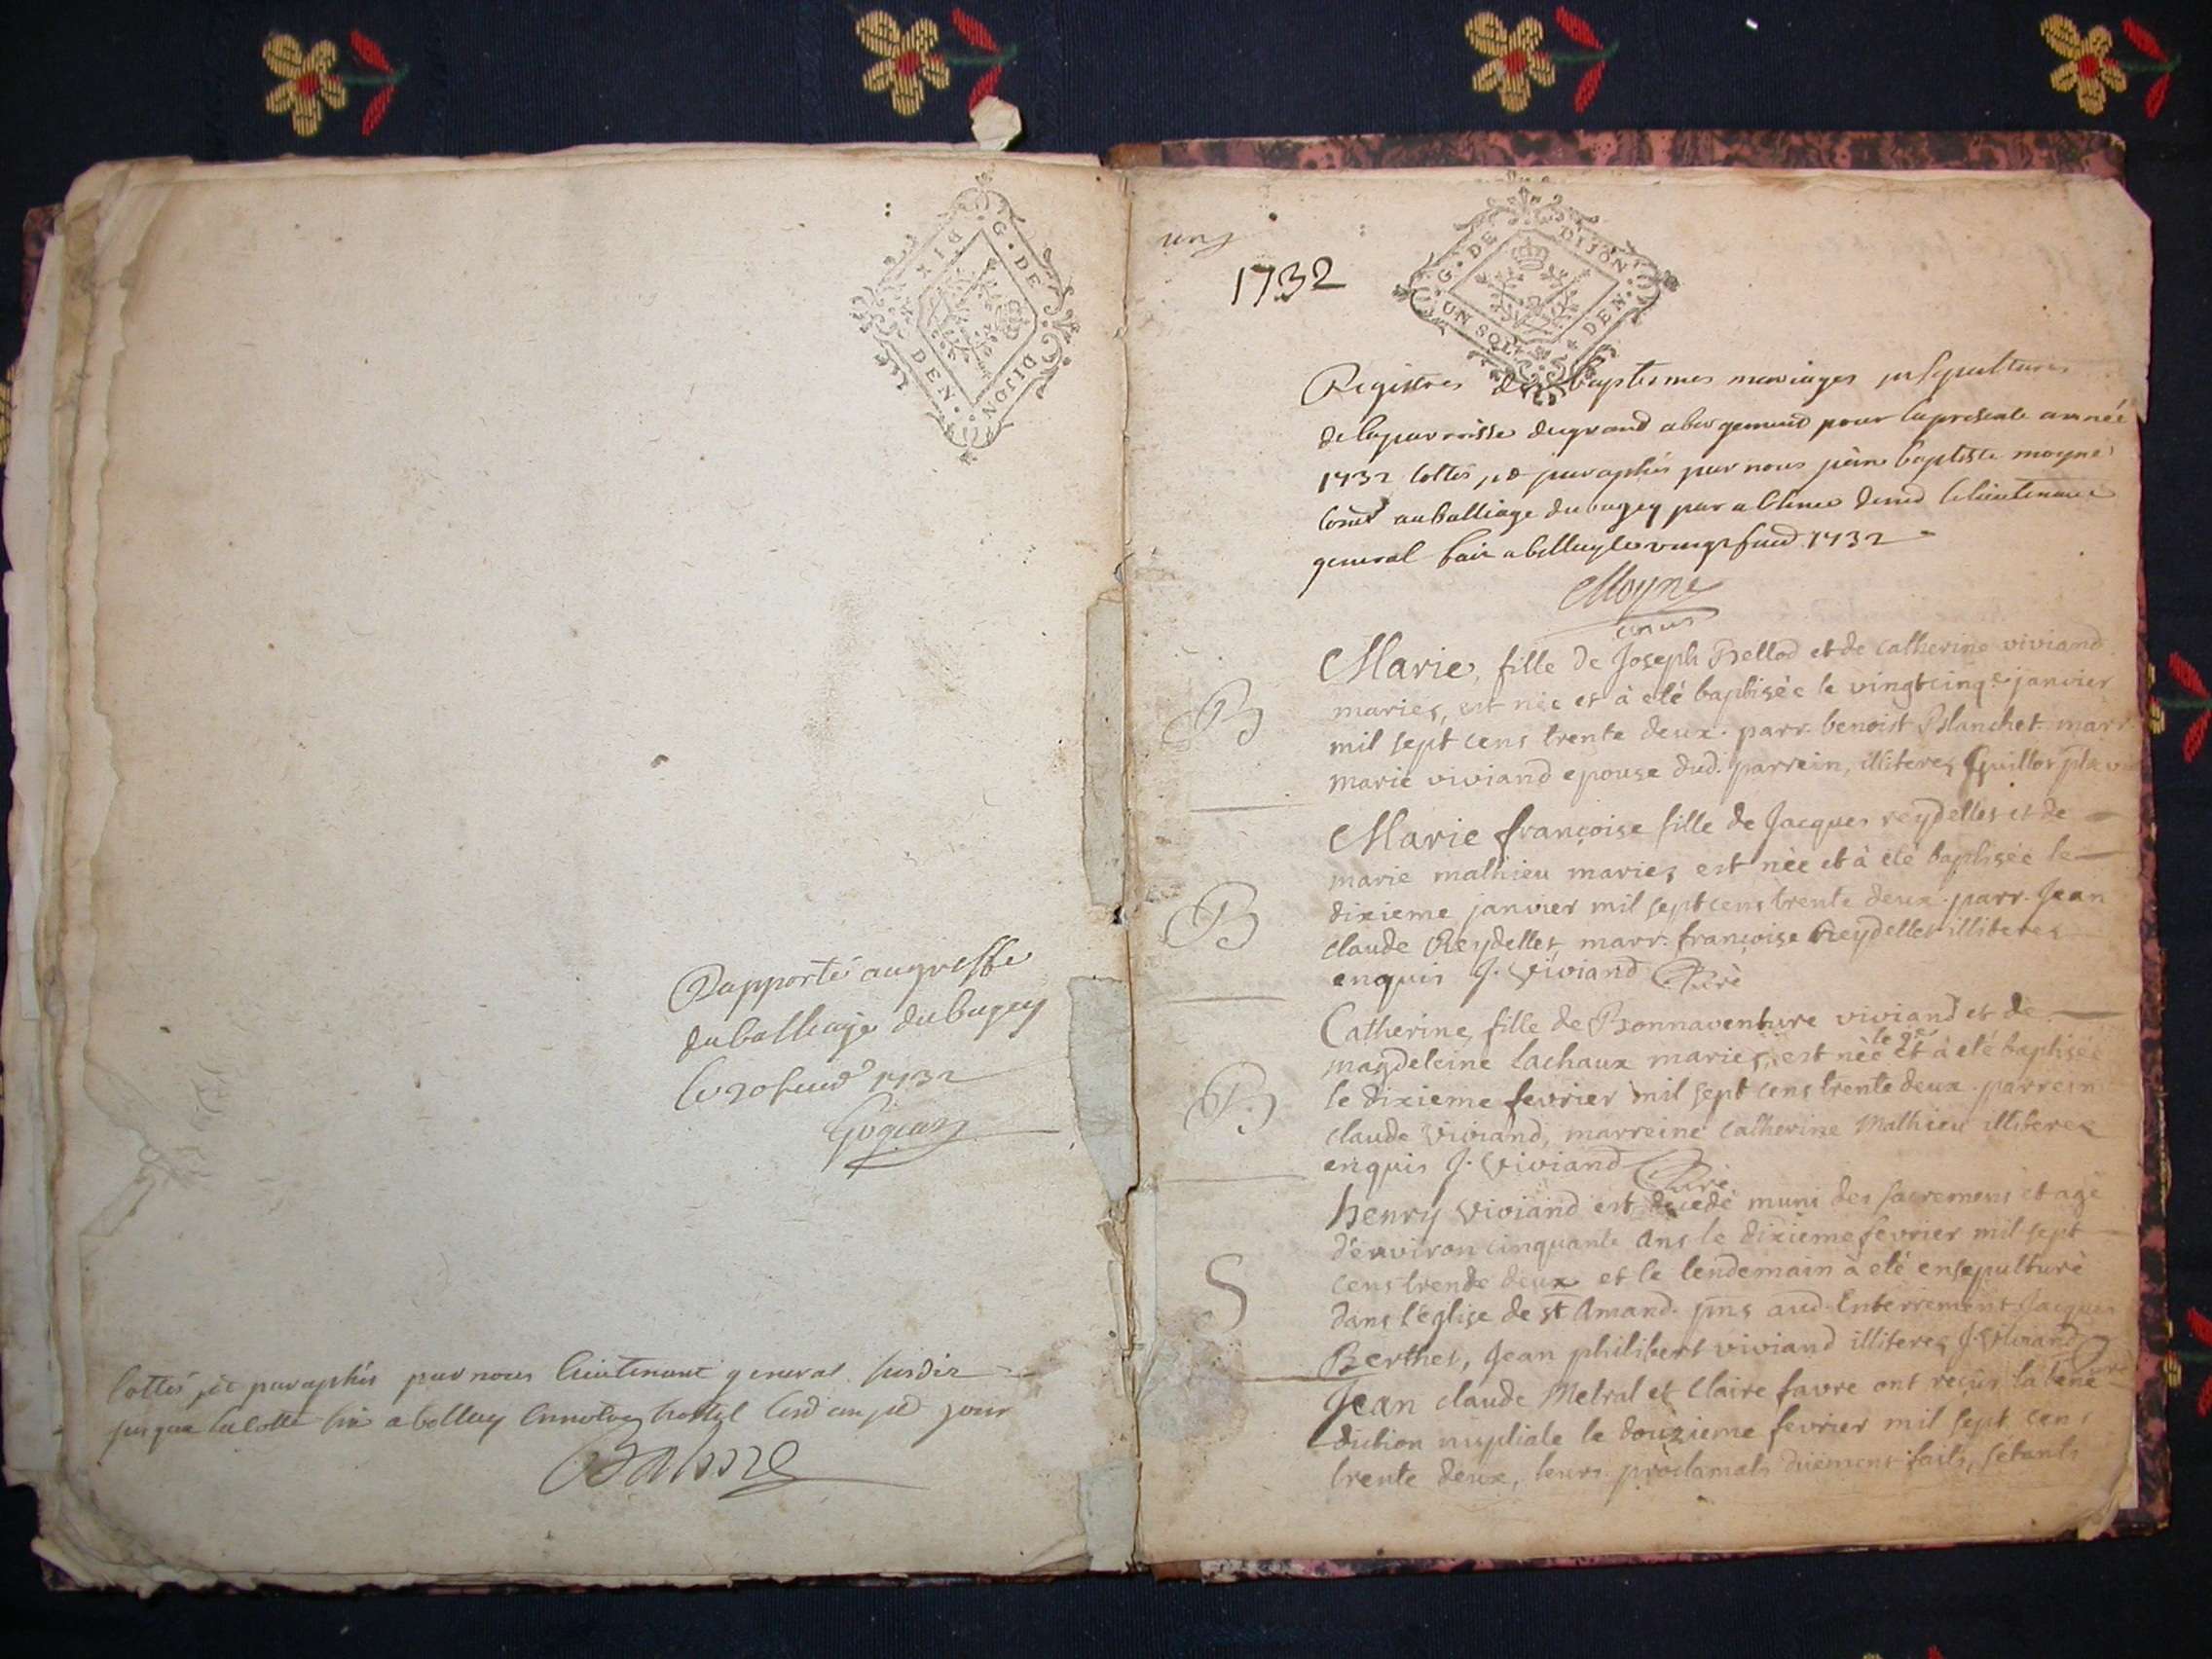 G. DE DIJON
DIX DEN.
Rapporté au greffe
du balliage du bugey
1732
cottés et paraphés par nous lieutenant general susdit
a belley en notre hostel jour
Balme
1732
G. DE DIJON
UN SOL DEN.
Registres des baptesmes mariages et sepultures
de la parroisse du grand abergement pour la presente année
1732 cottés et paraphés par nous jean baptiste moyne
au balliage du bugey par absence de le lieutenant
general fait a belley le 1732
Moyne
Marie, fille de Joseph Bellod et de catherine viviand
mariés, est née et à eté baptisée le vingtcinqe janvier
B
mil sept cens trente deux. parr. benoist Blanchet. marr
marie viviand epouse dud. parrein, illiteres
Marie françoise fille de Jacques reydellet et de
marie mathieu mariés est née et à eté baptisée le
B
dixieme janvier mil sept cens trente deux. parr. Jean
claude Reydellet, marr. françoise Reydellet illiteres
enquis J. Viviand Curé
Catherine, fille de Bonnaventure viviand et de
magdeleine Lachaux mariés, est née le 9e et à eté baptisée
B
le dixieme fevrier mil sept cens trente deux. parrein
claude Viviand, marreine catherine Mathieu illiteres
enquis J. Viviand Curé
henry Viviand est decedé muni des sacremens et agé
d'environ cinquante ans le dixieme fevrier mil sept
S
cens trente deux et le lendemain à eté ensepulturé
dans l'église de st Amand. pns aud. Enterrement Jacques
Berthet, Jean philibert viviand illiteres J. Viviand Curé
Jean claude Metral et Claire favre ont reçûs la bene
diction nuptiale le douzieme fevrier mil sept cens
trente deux, leurs proclamats duement faits, setants